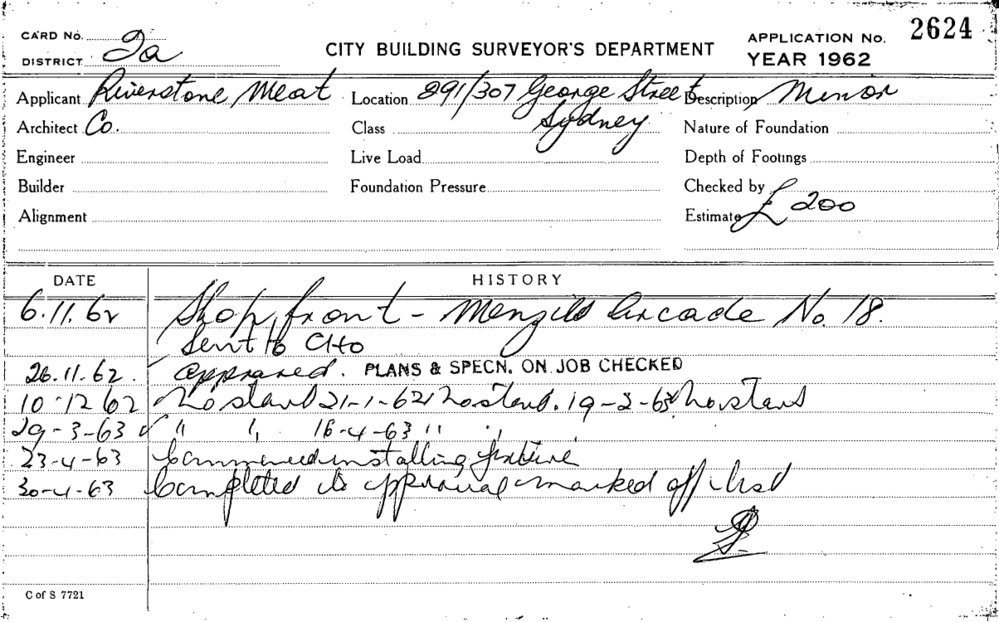 CARD No.
DISTRICT 2a
CITY BUILDING SURVEYOR'S DEPARTMENT
APPLICATION No. 2624
YEAR 1962
Applicant Riverstone Meat Location 291/307 George Street Description Minor
Architect Co. Class Sydney Nature of Foundation
Engineer Live Load Depth of Footings
Builder Foundation Pressure Checked by
Alignment Estimate £ 200
DATE HISTORY
6.11.62 Shop front - Menzies Arcade No. 18.
Sent to CHO
26.11.62. approved. PLANS & SPECN. ON JOB CHECKED
10-12 62 No start 21-1-62 No start. 19-2-63 No start
29-3-63 " " 16-4-63 " "
23-4-63 Commenced installing fixture
30-4-63 Completed to approval marked off list
C of S 7721